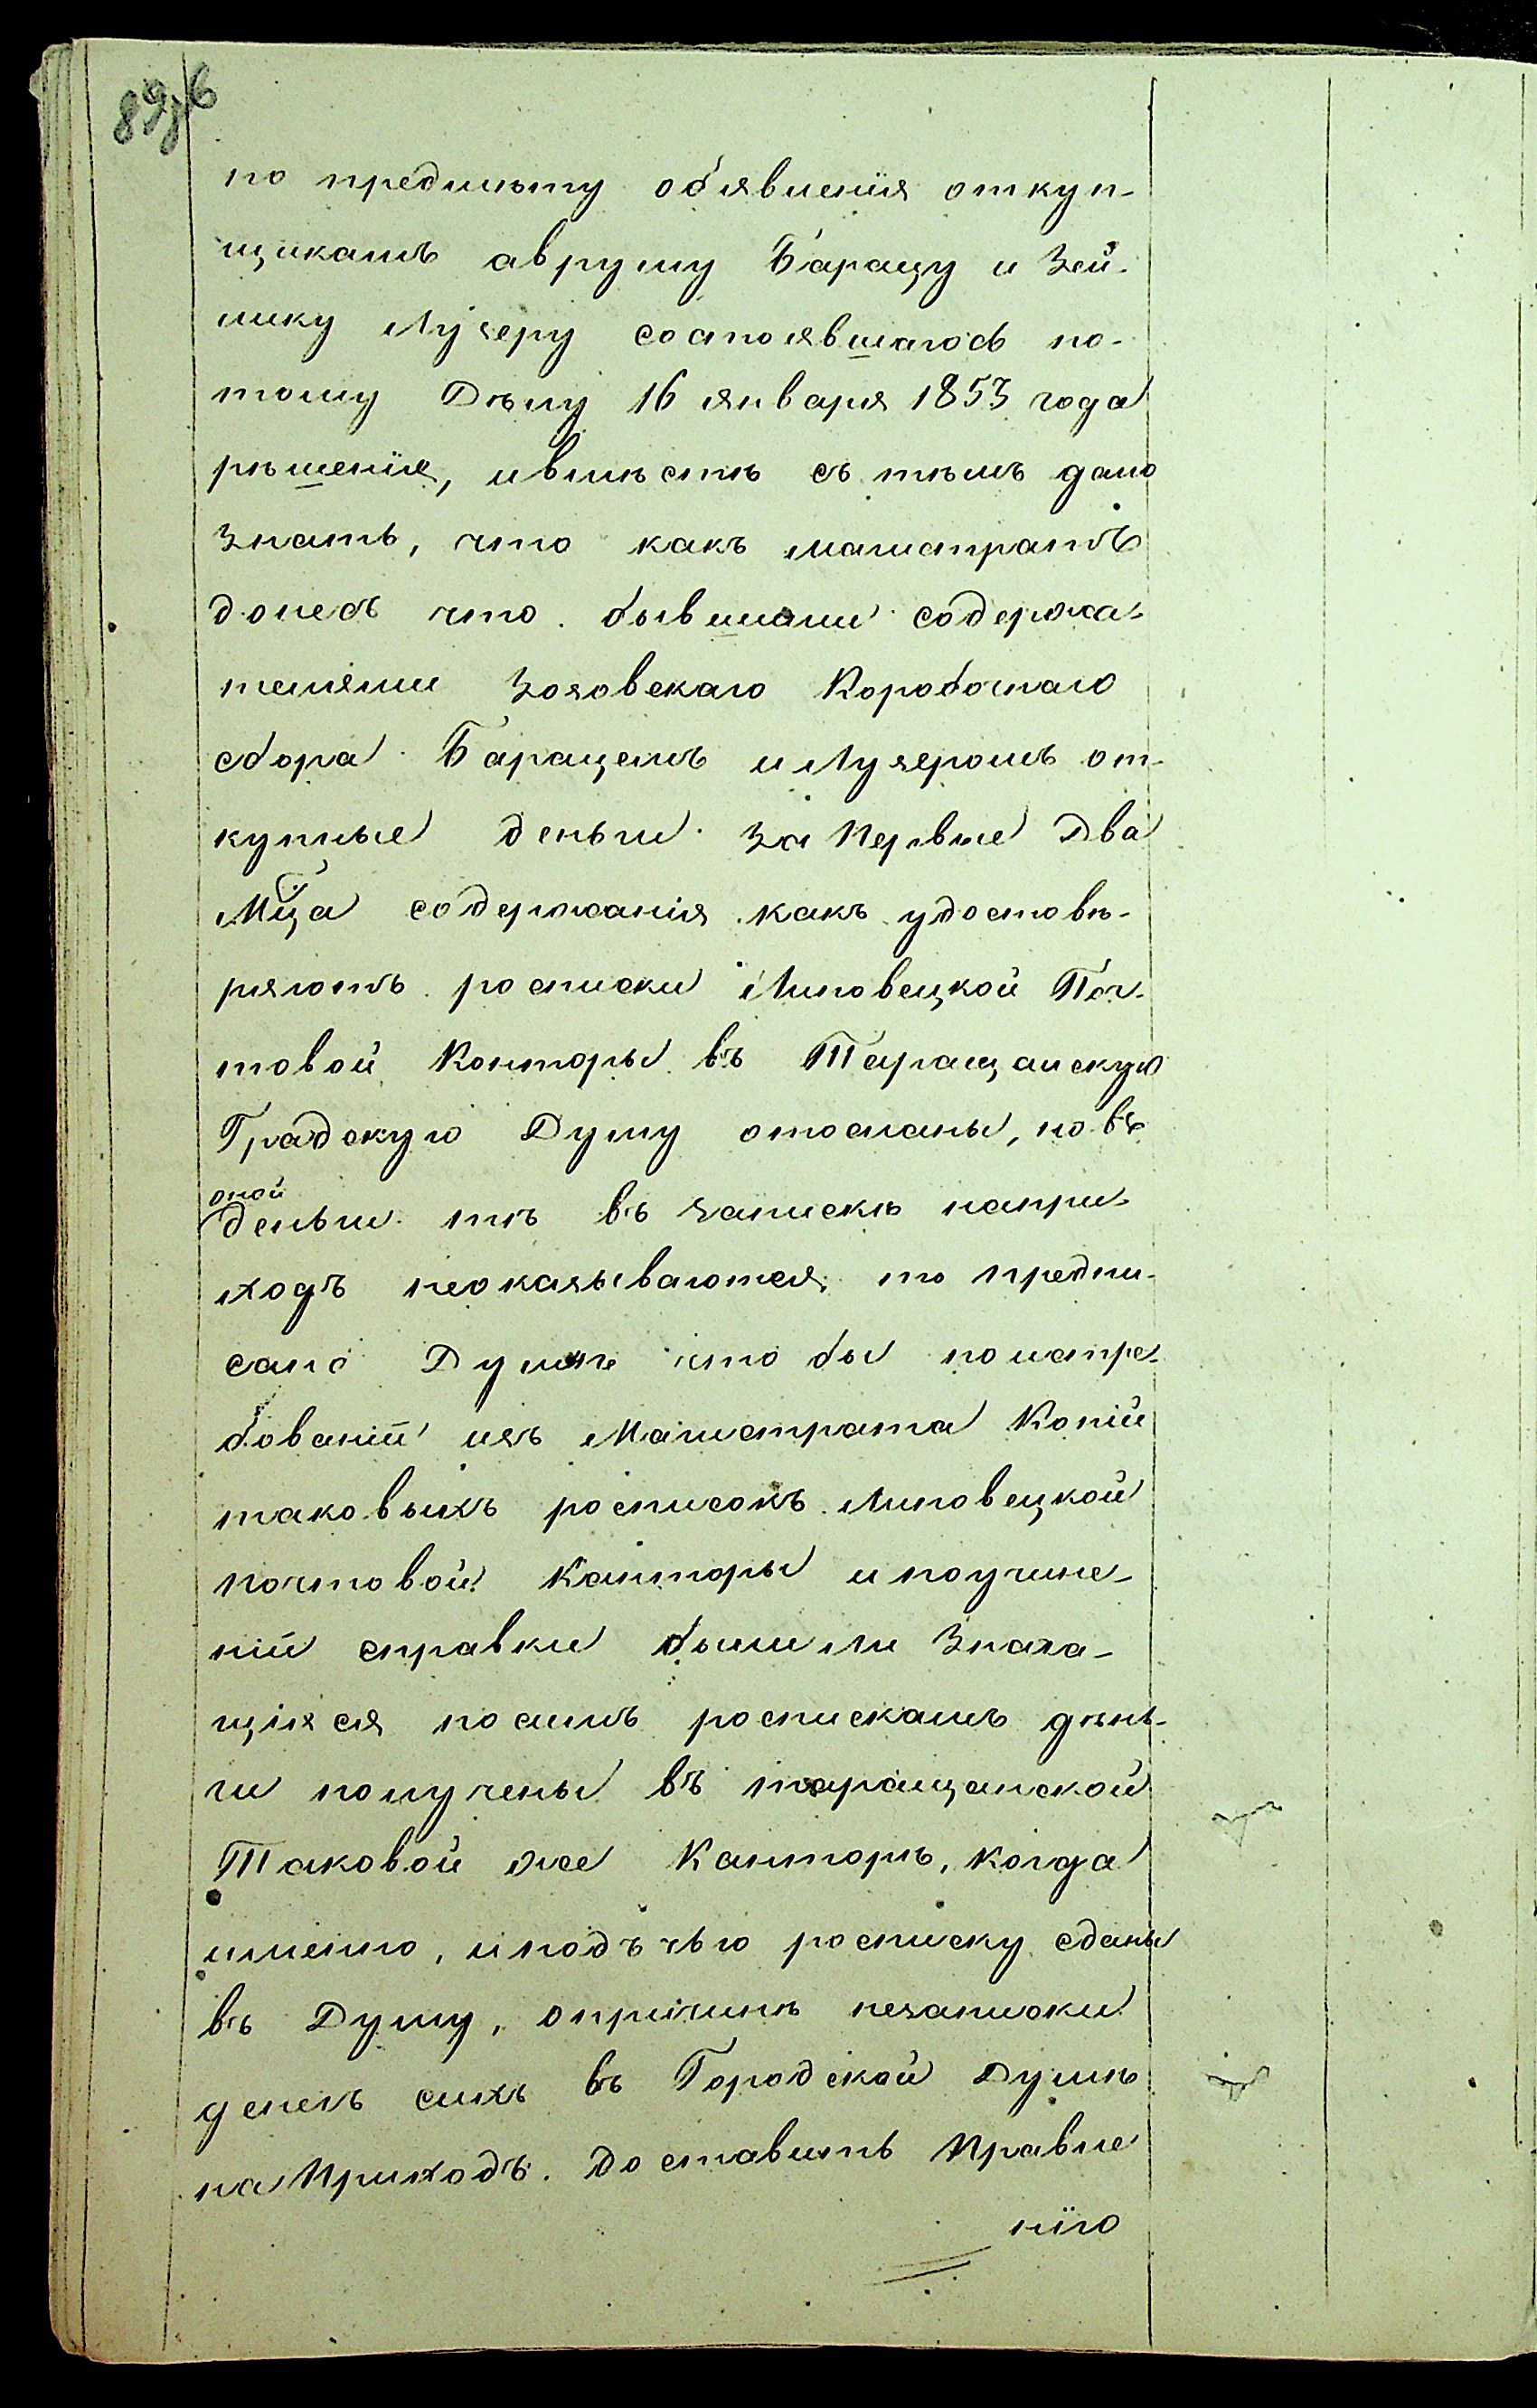 89об
по предмѣту обявленія откуп-
щикамъ авруму Баращу и Зей-
лику Лузеру состоявшагось по-
тому Дѣлу 16 января 1853 года
рѣшенія, ивмѣстѣ съ тѣмъ дано
знать, что какъ магистратъ
донесъ что бывшими содержа-
телями Зозовскаго Коробочнаго
сбора Баращемъ и Лузеромъ от-
купные деньги за Первые Два
Мца содержанія какъ удостовѣ-
ряютъ росписки Липовецкой Поч-
товой Конторы въ Таращанскую
Градскую Думу отосланы, но въ
оной
деньги тѣ въ запискѣ напри-
ходъ неоказываются, то предпи-
сано Думѣ что бы поистре-
бованіи изъ Магистрата Копій
таковыхъ росписокъ Липовецкой
почтовой Канторы и поучине-
ніи справки былили Знача-
щіяся посимъ роспискамъ день-
ги получены въ таращанской
Таковой же Канторѣ, когда
именно, и подъ чью росписку сданы
въ Думу, опричинѣ незаписки
денегъ сихъ въ Городской Думѣ
на Приходъ. доставить Правле
нію